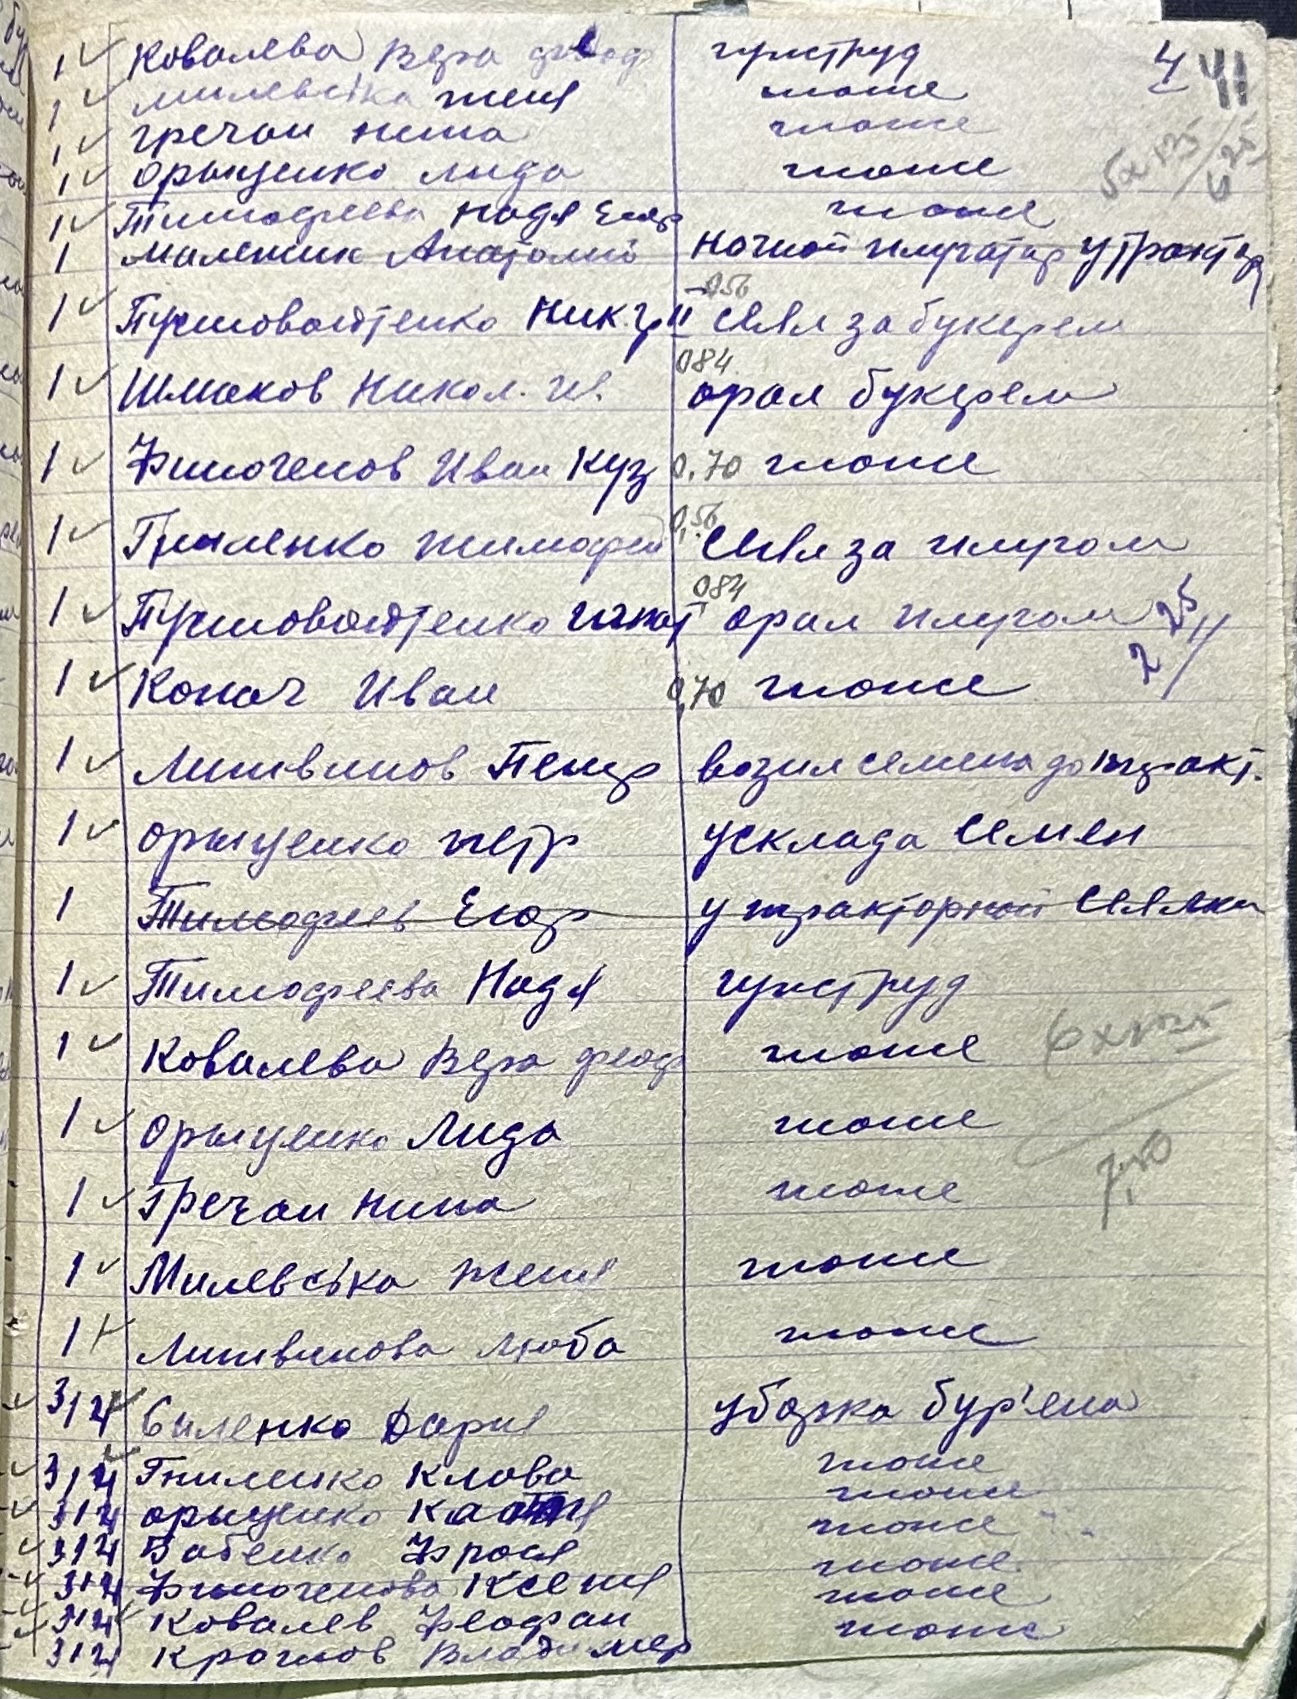 1 Ковалева Вера Феоф гужтруд 4 41
1 Милевська Женя тоже
1 Гречан Нина тоже
1 Орыщенко Лида тоже
1 Тимофеева Надя Егор тоже
1 Малежик Анатолий ночной плугатар у трактор
1 Пустовойтенко Ник. Гр 0,56 сеял за букером
1 Шмаков Никол. Ив. 084 орал букером
1 Филогенов Иван Куз 0,70 тоже
1 Гниленко Тимофей 0,56 сеял за плугом
1 Пустовойтенко Игнат 084 орал плугом
1 Конач Иван 0,70 тоже
1 Литвинов Петр возил семена до тракт.
1 Орыщенко Петр у склада семен
1 Тимофеев Егор у тракторной сеялки
1 Тимофеева Надя гужтруд
1 Ковалева Вера Феоф тоже
1 Орыщенко Лида тоже
1 Гречан Нина тоже
1 Милевська Женя тоже
1 Литвинова Люба тоже
3/4 Силенко Дария уборка бур'яна
3/4 Гниленко Клава тоже
3/4 Орыщенко тоже
3/4 Бабенко Фрося тоже
3/4 Филогенова Ксения тоже
3/4 Ковалев Феофан тоже
3/4 Круглов Владимер тоже